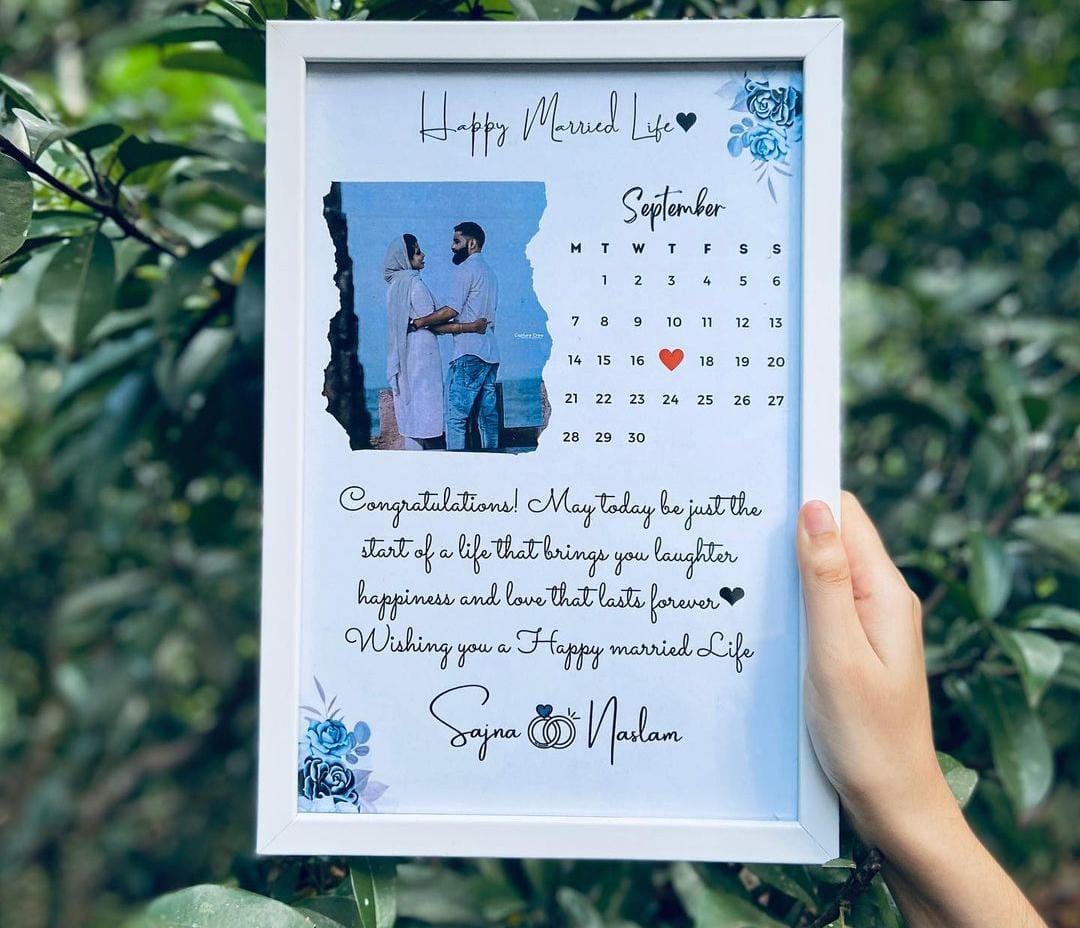 Happy Married Life
September
M T W T F S S
1 2 3 4 5 6
7 8 9 10 11 12 13
14 15 16 18 19 20
21 22 23 24 25 26 27
28 29 30
Capture Crew
Congratulations! May today be just the
start of a life that brings you laughter
happiness and love that lasts forever
Wishing you a Happy married Life
Sajna Naslam